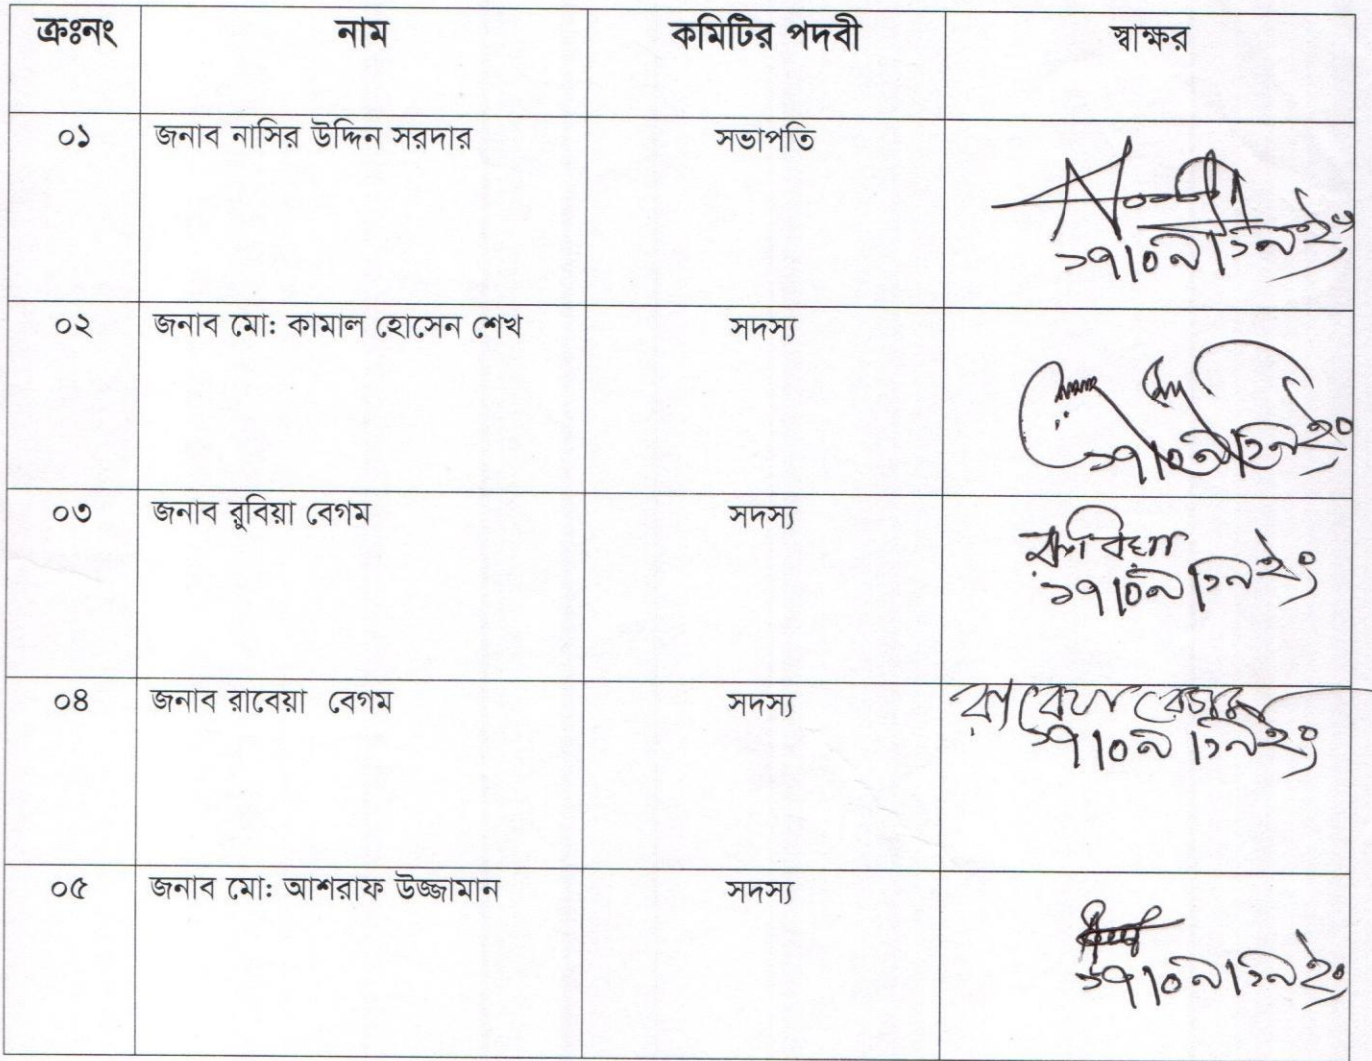 ক্রঃনং নাম কমিটির পদবী স্বাক্ষর
০১ জনাব নাসির উদ্দিন সরদার সভাপতি
১৭/০৯/১৯ ইং
০২ জনাব মো: কামাল হোসেন শেখ সদস্য
১৭/০৯/১৯ ইং
০৩ জনাব রুবিয়া বেগম সদস্য
রুবিয়া
১৭/০৯/১৯ ইং
০৪ জনাব রাবেয়া বেগম সদস্য রাবেয়া বেগম
১৭/০৯/১৯ ইং
০৫ জনাব মো: আশরাফ উজ্জামান সদস্য
১৭/০৯/১৯ ইং